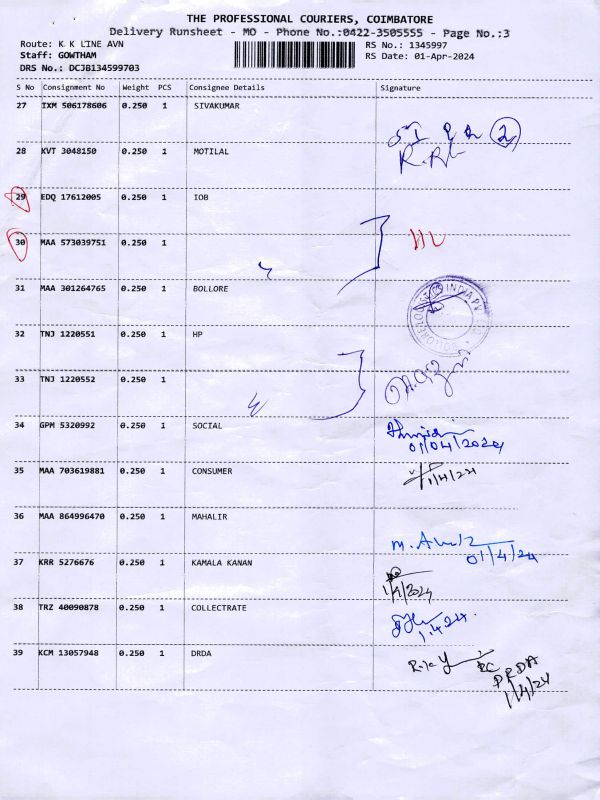 THE PROFESSIONAL COURIERS, COIMBATORE
Delivery Runsheet - MO - Phone No.:0422-3505555 - Page No.:3
Route: K K LINE AVN
RS No.: 1345997
Staff: GOWTHAM
RS Date: 01-Apr-2024
DRS No.: DCJB134599703
S No Consignment No Weight PCS Consignee Details Signature
27 IXM 506178606 0.250 1 SIVAKUMAR
2
28 KVT 3048150 0.250 1 MOTILAL
29 EDQ 17612005 0.250 1 IOB
30 MAA 573039751 0.250 1
31 MAA 301264765 0.250 1 BOLLORE
32 TNJ 1220551 0.250 1 HP
33 TNJ 1220552 0.250 1
34 GPM 5320992 0.250 1 SOCIAL
01/04/2024
35 MAA 703619881 0.250 1 CONSUMER
1/4/24
36 MAA 864996470 0.250 1 MAHALIR
01/4/24
37 KRR 5276676 0.250 1 KAMALA KANAN
1/4/2024
38 TRZ 40090878 0.250 1 COLLECTRATE
1.4.24
39 KCM 13057948 0.250 1 DRDA
DRDA
1/4/24